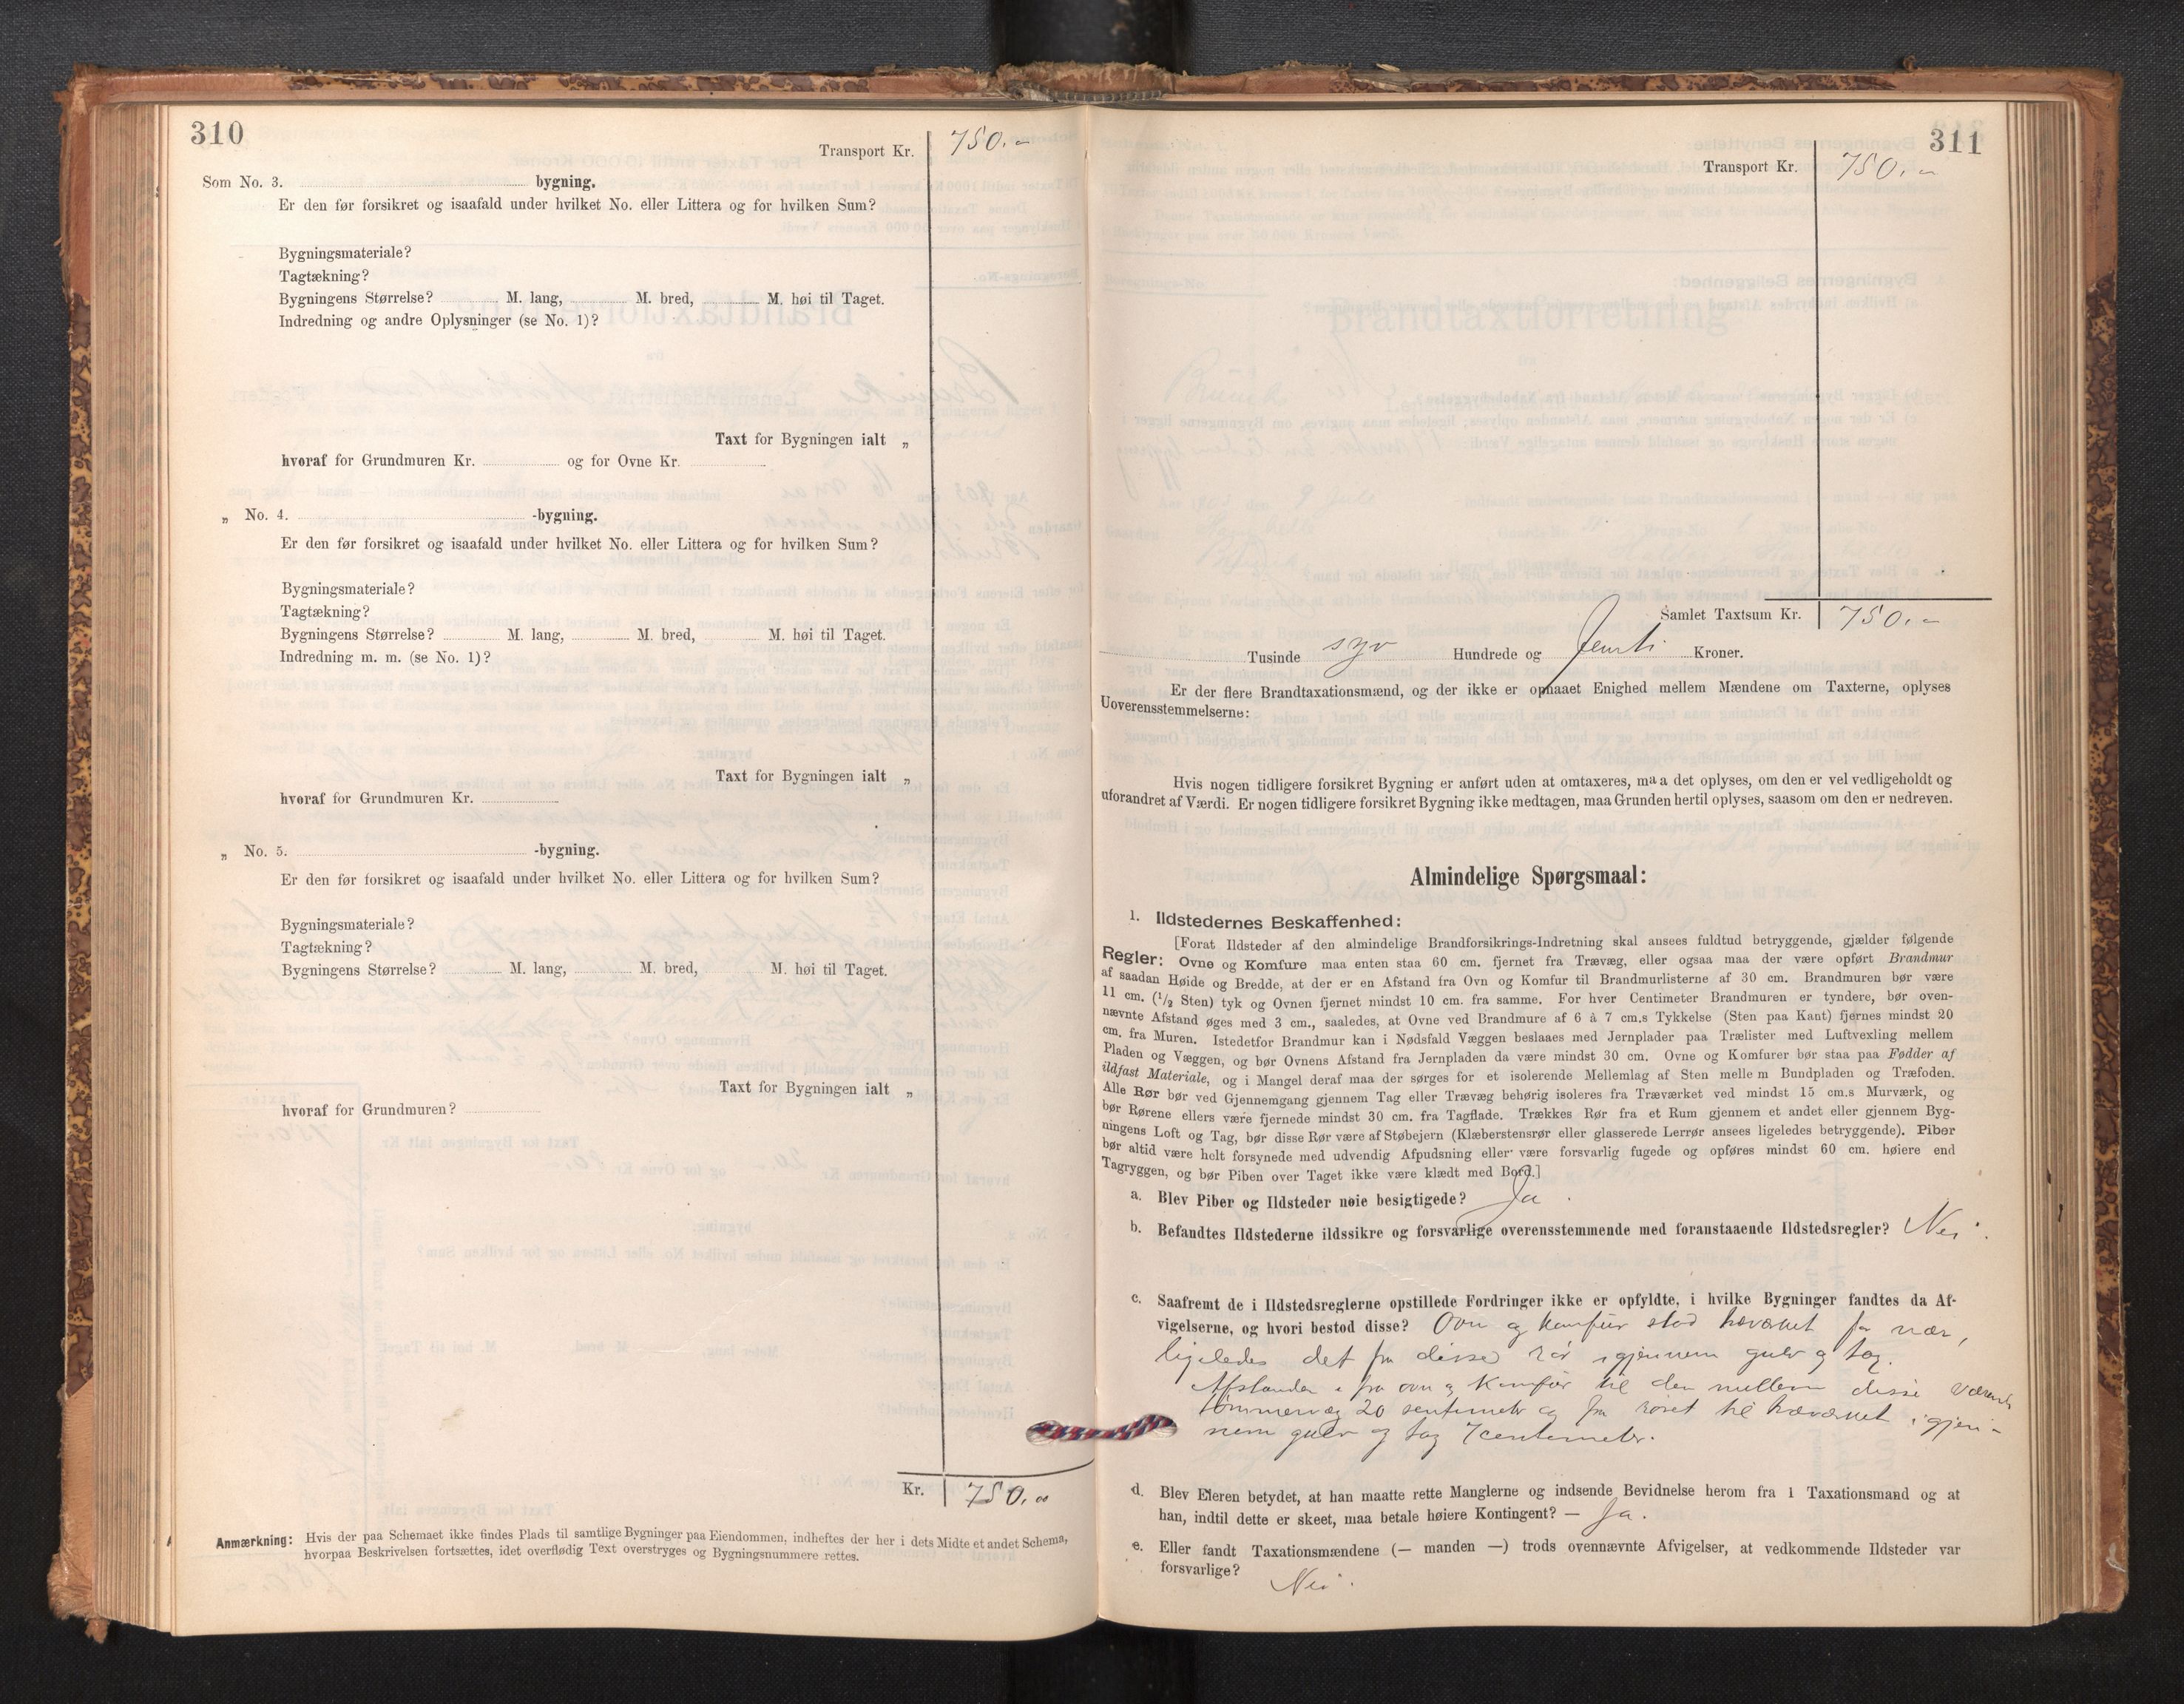 310
Transport Kr. 750.-
Som No. 3. bygning.
Er den før forsikret og isaafald under hvilket No. eller Littera og for hvilken Sum?
Bygningsmateriale?
Tagtækning?
Bygningens Størrelse? M. lang, M. bred, M. høi til Taget.
Indredning og andre Oplysninger (se No. 1)?
Taxt for Bygningen ialt „
hvoraf for Grundmuren Kr. og for Ovne Kr.
„ No. 4. -bygning.
Er den før forsikret og isaafald under hvilket No. eller Littera og for hvilken Sum?
Bygningsmateriale?
Tagtækning?
Bygningens Størrelse? M. lang, M. bred, M. høi til Taget.
Indredning m. m. (se No. 1)?
Taxt for Bygningen ialt „
hvoraf for Grundmuren Kr.
„ No. 5. -bygning.
Er den før forsikret og isaafald under hvilket No. eller Littera og for hvilken Sum?
Bygningsmateriale?
Tagtækning?
Bygningens Størrelse? M. lang, M. bred, M. høi til Taget.
Taxt for Bygningen ialt „
hvoraf for Grundmuren?
Kr. 750.00
Anmærkning: Hvis der paa Schemaet ikke findes Plads til samtlige Bygninger paa Eiendommen, indheftes der her i dets Midte et andet Schema,
hvorpaa Beskrivelsen fortsættes, idet overflødig Text overstryges og Bygningsnummere rettes.
311
Transport Kr. 750.-
Samlet Taxtsum Kr. 750.-
Tusinde syv Hundrede og femti Kroner.
Er der flere Brandtaxationsmænd, og der ikke er opnaaet Enighed mellem Mændene om Taxterne, oplyses
Uoverensstemmelserne:
Hvis nogen tidligere forsikret Bygning er anført uden at omtaxeres, maa det oplyses, om den er vel vedligeholdt og
uforandret af Værdi. Er nogen tidligere forsikret Bygning ikke medtagen, maa Grunden hertil oplyses, saasom om den er nedreven.
Almindelige Spørgsmaal:
1. Ildstedernes Beskaffenhed:
[Forat Ildsteder af den almindelige Brandforsikrings-Indretning skal ansees fuldtud betryggende, gjælder følgende
Regler: Ovne og Komfure maa enten staa 60 cm. fjernet fra Trævæg, eller ogsaa maa der være opført Brandmur
af saadan Høide og Bredde, at der er en Afstand fra Ovn og Komfur til Brandmurlisterne af 30 cm. Brandmuren bør være
11 cm. (1/2 Sten) tyk og Ovnen fjernet mindst 10 cm. fra samme. For hver Centimeter Brandmuren er tyndere, bør oven-
nævnte Afstand øges med 3 cm., saaledes, at Ovne ved Brandmure af 6 à 7 cm.s Tykkelse (Sten paa Kant) fjernes mindst 20
cm. fra Muren. Istedetfor Brandmur kan i Nødsfald Væggen beslaaes med Jernplader paa Trælister med Luftvexling mellem
Pladen og Væggen, og bør Ovnens Afstand fra Jernpladen da være mindst 30 cm. Ovne og Komfurer bør staa paa Fødder af
ildfast Materiale, og i Mangel deraf maa der sørges for et isolerende Mellemlag af Sten mellem Bundpladen og Træfoden.
Alle Rør bør ved Gjennemgang gjennem Tag eller Trævæg behørig isoleres fra Træværket ved mindst 15 cm.s Murværk, og
bør Rørene ellers være fjernede mindst 30 cm. fra Tagflade. Trækkes Rør fra et Rum gjennem et andet eller gjennem Byg-
ningens Loft og Tag, bør disse Rør være af Støbejern (Klæberstensrør eller glasserede Lerrør ansees ligeledes betryggende). Piber
bør altid være helt forsynede med udvendig Afpudsning eller være forsvarlig fugede og opføres mindst 60 cm. høiere end
Tagryggen, og bør Piben over Taget ikke være klædt med Bord.]
a. Blev Piber og Ildsteder nøie besigtigede? Ja.
b. Befandtes Ildstederne ildssikre og forsvarlige overensstemmende med foranstaaende Ildstedsregler? Nei.
c. Saafremt de i Ildstedsreglerne opstillede Fordringer ikke er opfyldte, i hvilke Bygninger fandtes da Af-
vigelserne, og hvori bestod disse? Ovn og Komfür stod træværket for nær,
ligeledes det fra disse rør igjennem gulv og tag.
Afstanden i fra ovn og Komfür til den mellem disse værende
tømmervæg 20 sentimeter og fra røret til træværket igjen-
nem gulv og tag 7 centimeter.
d. Blev Eieren betydet, at han maatte rette Manglerne og indsende Bevidnelse herom fra 1 Taxationsmand og at
han, indtil dette er skeet, maa betale høiere Kontingent? — Ja.
e. Eller fandt Taxationsmændene (— manden —) trods ovennævnte Afvigelser, at vedkommende Ildsteder var
forsvarlige? Nei.